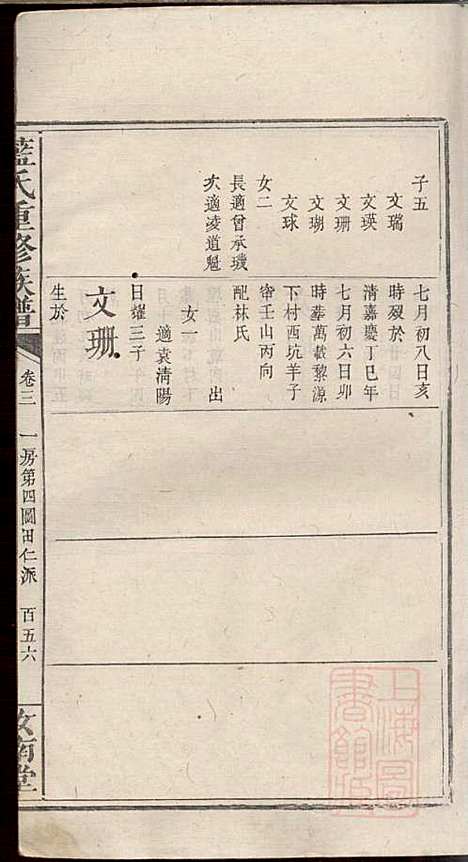 子五
文瑞
文瑛
文珊
文瑚
文球
女二
長適曾承璣
次適凌道魁
七月初八日亥
時歿於
清嘉慶丁巳年
七月初六日卯
時塟萬載黎源
下村西坑羊子
窩壬山丙向
配林氏
出
女一
適袁淸陽
日燿三子
文珊
生於
藍氏重修族譜
卷三
一房第四圖田仁派
百五六
汝南堂
上海圖
書館藏